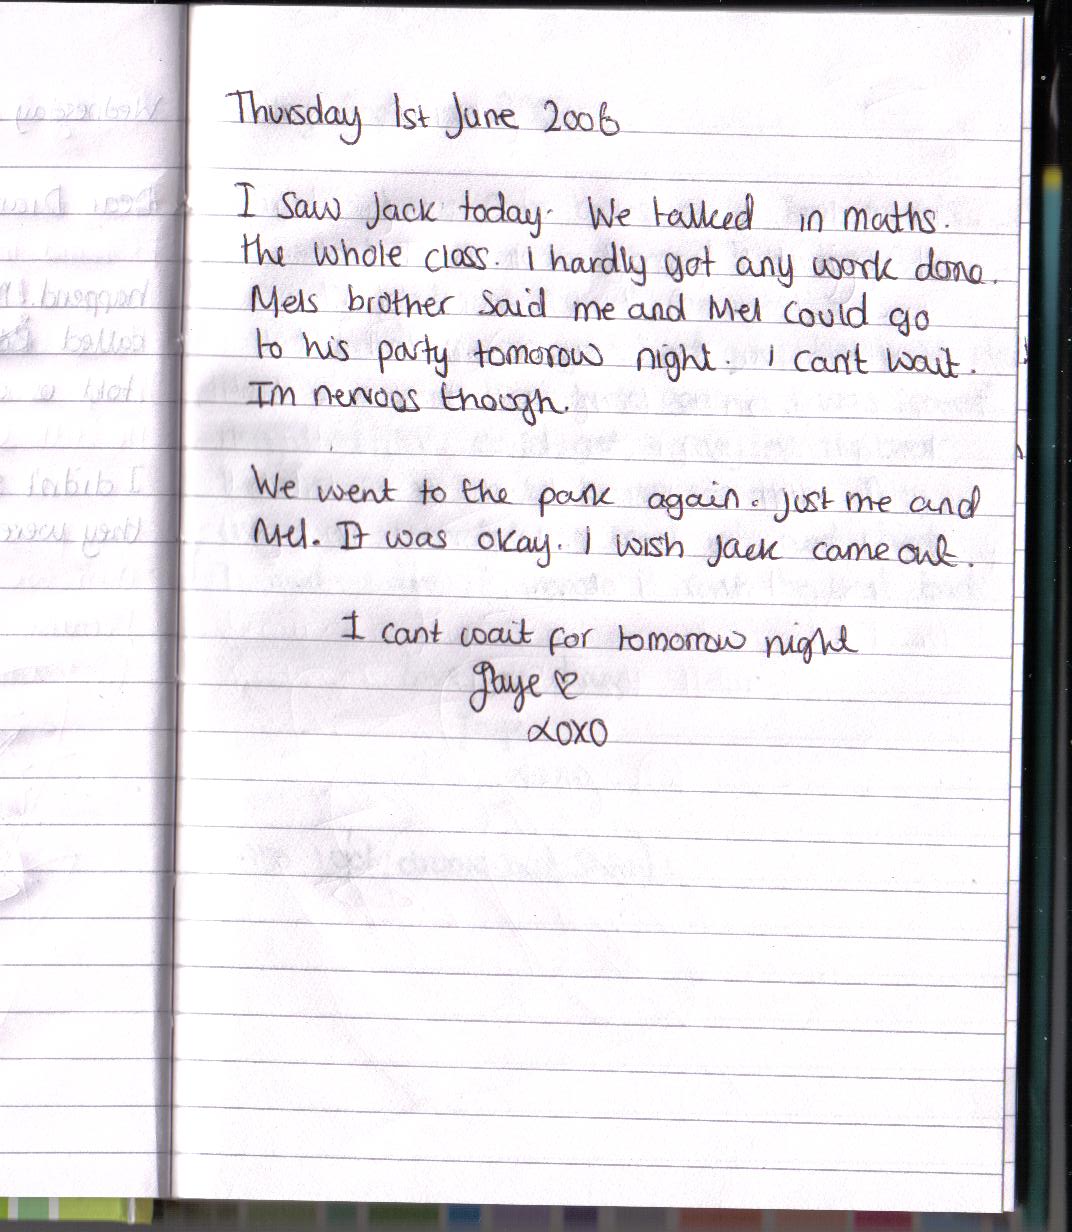 Thursday 1st June 2006
I saw Jack today. We talked in maths.
the whole class. I hardly got any work done.
Mels brother said me and Mel could go
to his party tomorow night. I can't wait.
Im nervous though.
We went to the park again. Just me and
Mel. It was okay. I wish Jack came out.
I cant wait for tomorrow night
Jaye ♡
XOXO
Wednesday
Dear
happend!!
called
told a
I didn't
they were